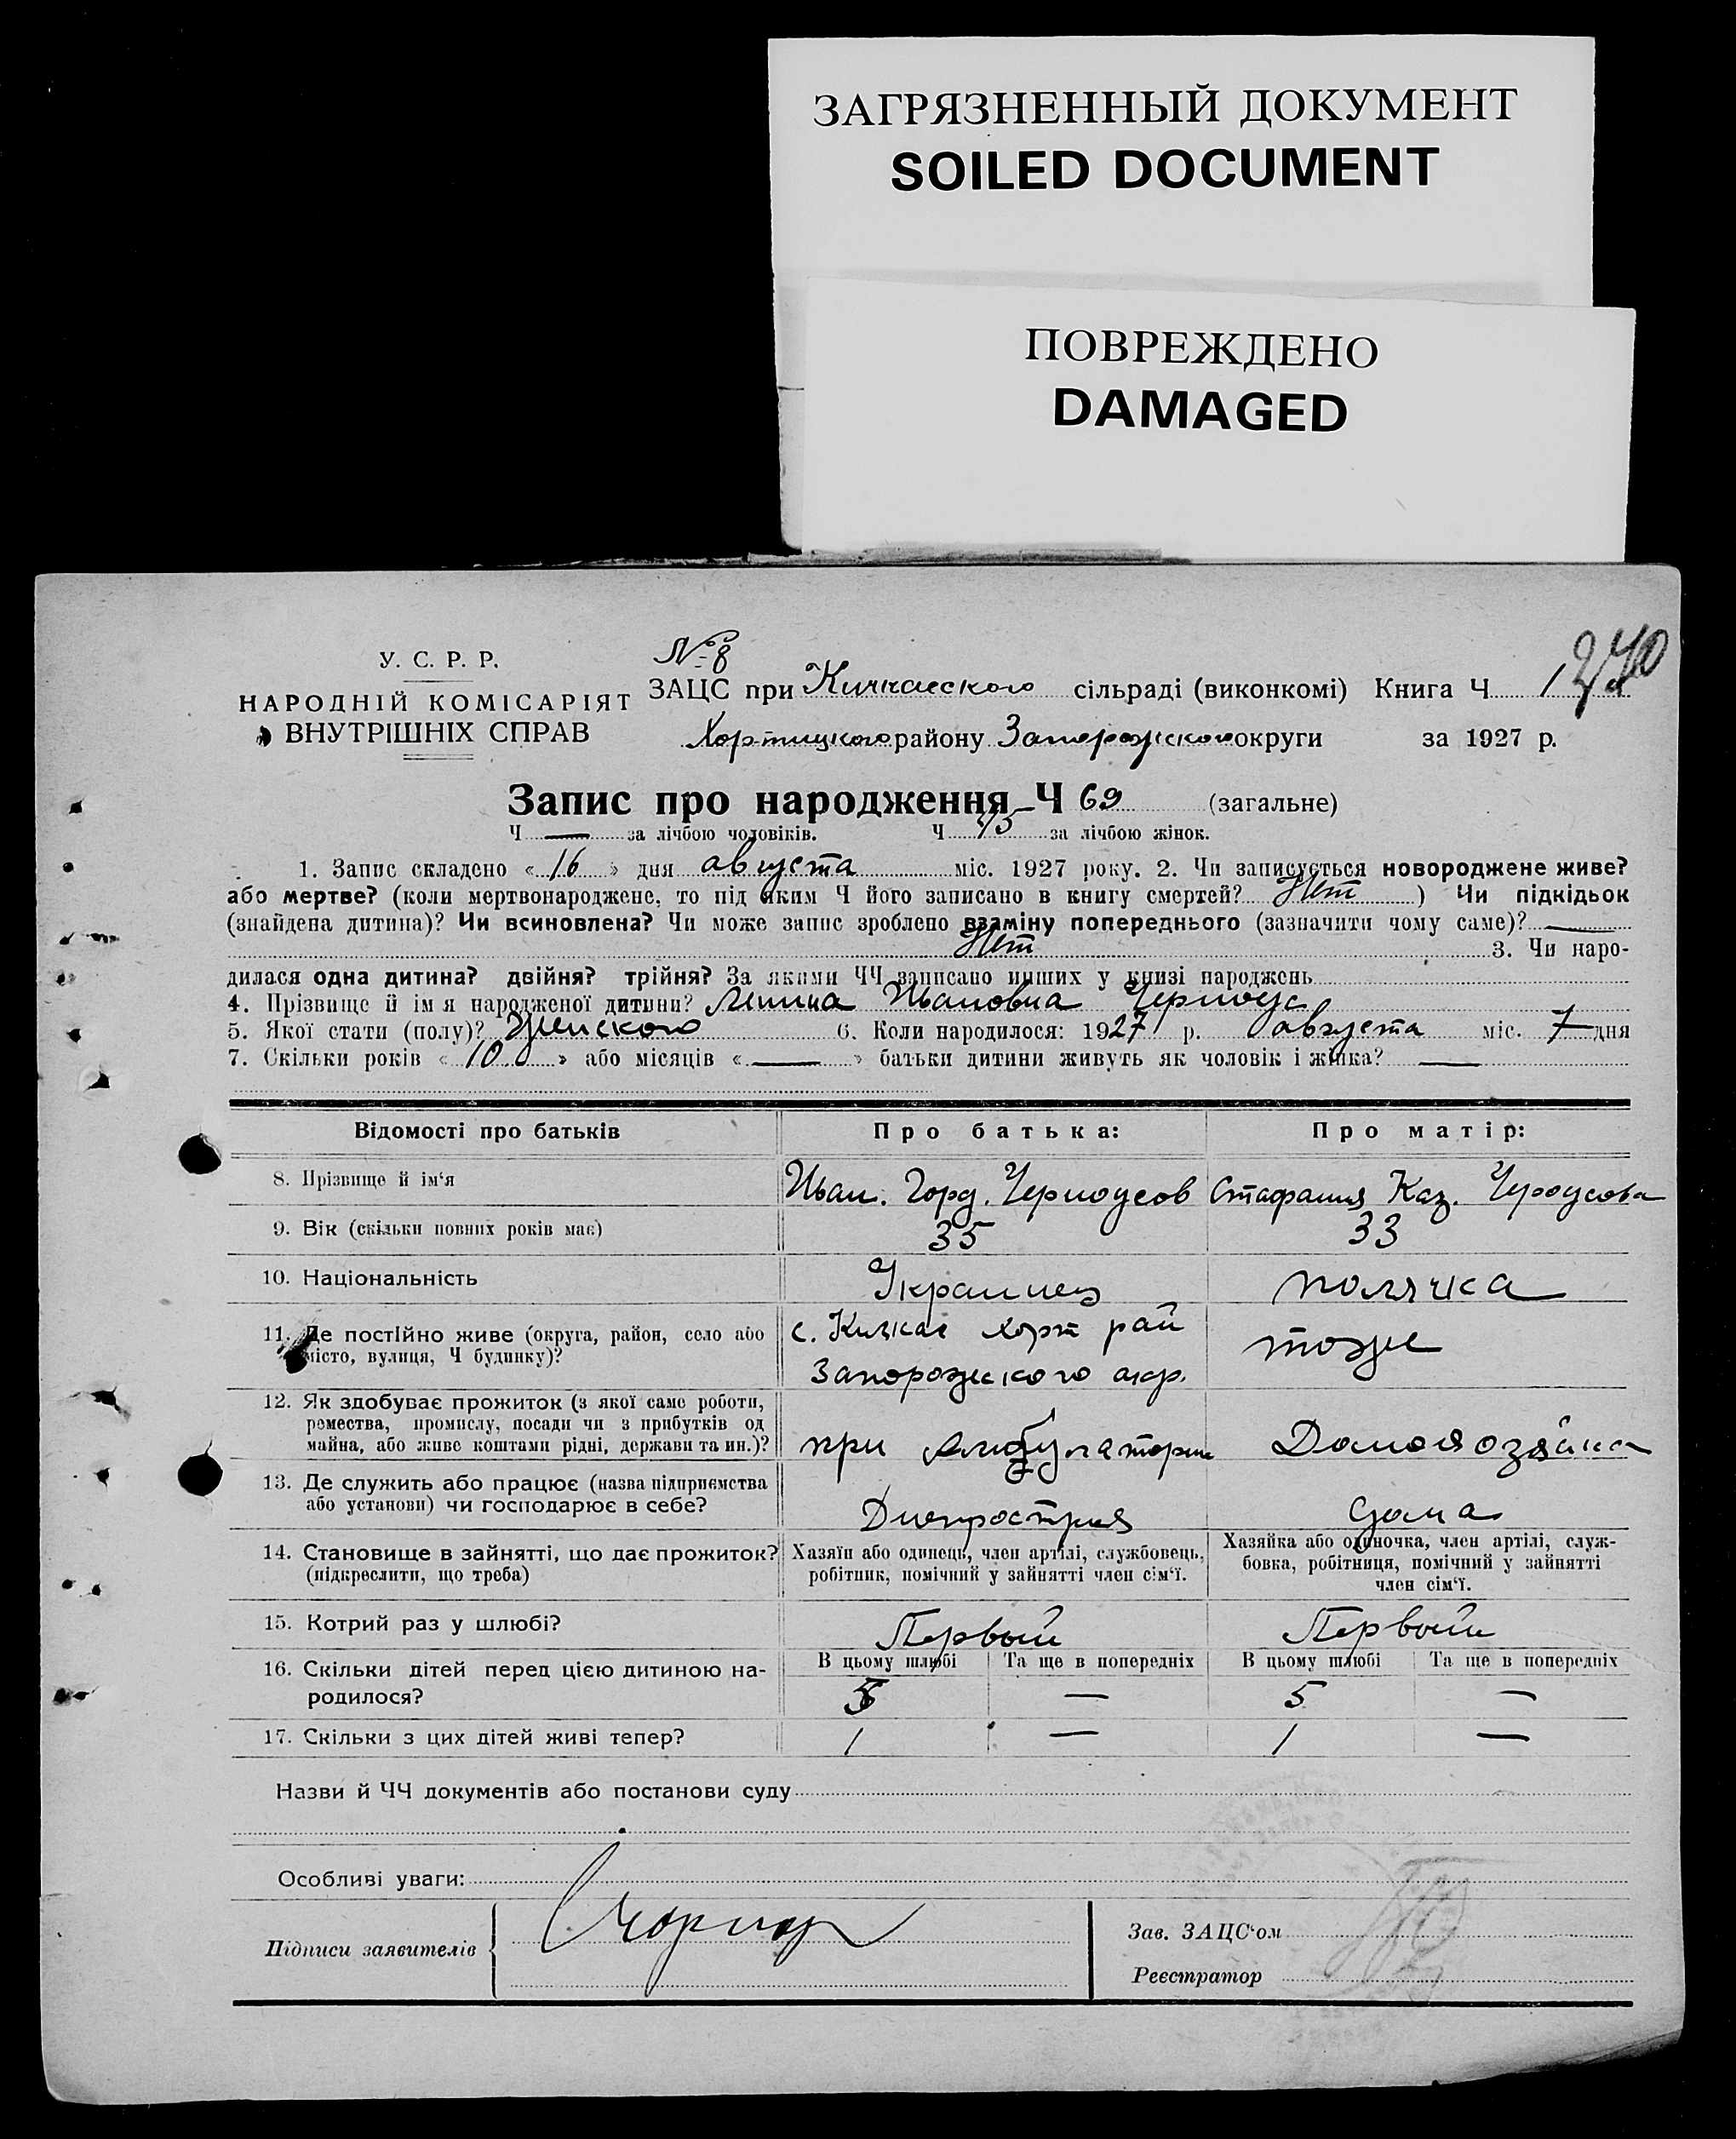 ЗАГРЯЗНЕННЫЙ ДОКУМЕНТ
SOILED DOCUMENT
ПОВРЕЖДЕНО
DAMAGED
У. С. Р. Р.
НАРОДНІЙ КОМІСАРІЯТ
ВНУТРІШНІХ СПРАВ
№ 8
ЗАЦС при Кичкасского сільраді (виконкомі) Книга Ч 1
Хортицкого району Запорожского округи за 1927 р.
Запис про народження Ч 69 (загальне)
Ч — за лічбою чоловіків. Ч за лічбою жінок.
1. Запис складено « 16 » дня августа міс. 1927 року. 2. Чи записується новороджене живе?
або мертве? (коли мертвонароджене, то під яким Ч його записано в книгу смертей? Нет ) Чи підкідьок
(знайдена дитина)? Чи всиновлена? Чи може запис зроблено взаміну попереднього (зазначити чому саме)? —
Нет 3. Чи наро-
дилася одна дитина? двійня? трійня? За якими ЧЧ записано инших у книзі народжень
4. Прізвище й ім я народженої дитини? Ленина Ивановна Черноус
5. Якої стати (полу)? Женского 6. Коли народилося: 1927 р. августа міс. 7 дня
7. Скільки років « 10 » або місяців « — » батьки дитини живуть як чоловік і жінка? —
Відомості про батьків Про батька: Про матір:
8. Прізвище й ім‘я Иван. Горд. Черноусов Стафания Каз. Чероусова
9. Вік (скільки повних років має) 35 33
10. Національність Украинец полячка
11. Де постійно живе (округа, район, село або
місто, вулиця, Ч будинку)?
с. Кичкас Хорт рай
Запорожского окр.
тоже
12. Як здобуває прожиток (з якої саме роботи,
ремества, промислу, посади чи з прибутків од
майна, або живе коштами рідні, держави та ин.)?
при амбулатории Домохозяйка
13. Де служить або працює (назва підприємства
або установи) чи господарює в себе?
Днепрострия дома
14. Становище в зайнятті, що дає прожиток?
(підкреслити, що треба)
Хазяїн або одинець, член артілі, службовець,
робітник, помічний у зайнятті член сім‘ї.
Хазяйка або одиночка, член артілі, служ-
бовка, робітниця, помічний у зайнятті
член сім‘ї.
15. Котрий раз у шлюбі? Первый Первый
16. Скільки дітей перед цією дитиною на-
родилося?
В цьому шлюбі Та ще в попередніх В цьому шлюбі Та ще в попередніх
5 — 5 —
17. Скільки з цих дітей живі тепер? 1 — 1 —
Назви й ЧЧ документів або постанови суду
Особливі уваги:
Підписи заявителів
Зав. ЗАЦС‘ом
Реєстратор